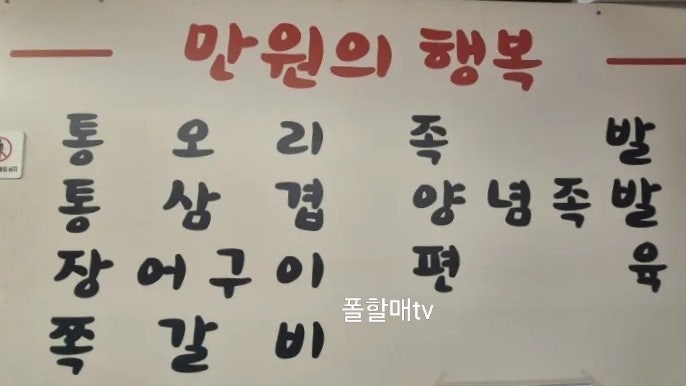 만원의 행복
통오리
통삼겹
장어구이
쪽갈비
족발
양념족발
편육
폴할매tv